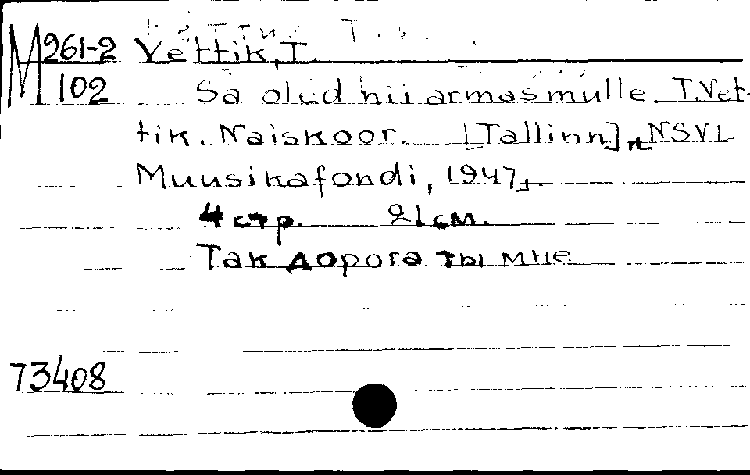 M 261-2 Vettik, T.
102 Sa oled nii armas mulle. T. Vet-
tik. Naiskoor. [Tallinn], NSVL
Muusikafondi, 1947.
4 стр. 21 см.
Так дорога ты мне
73408